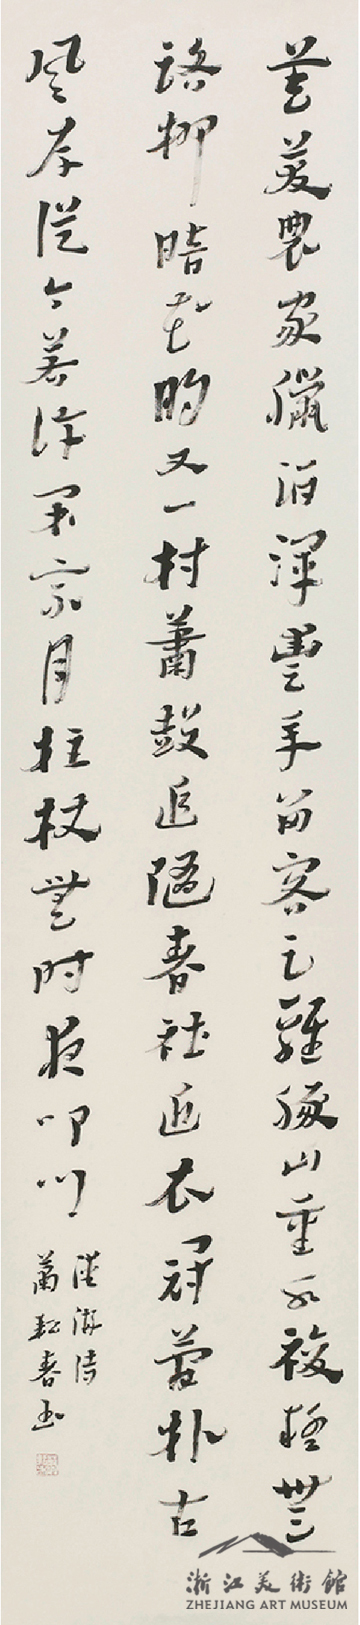 莫笑農家臘酒渾豐年留客足雞豚山重水複疑無
路柳暗花明又一村蕭鼓追隨春社近衣冠簡朴古
風存從今若許閑乘月拄杖無時夜叩門
陸游詩
蕭耘春書
浙江美術館
ZHEJIANG ART MUSEUM